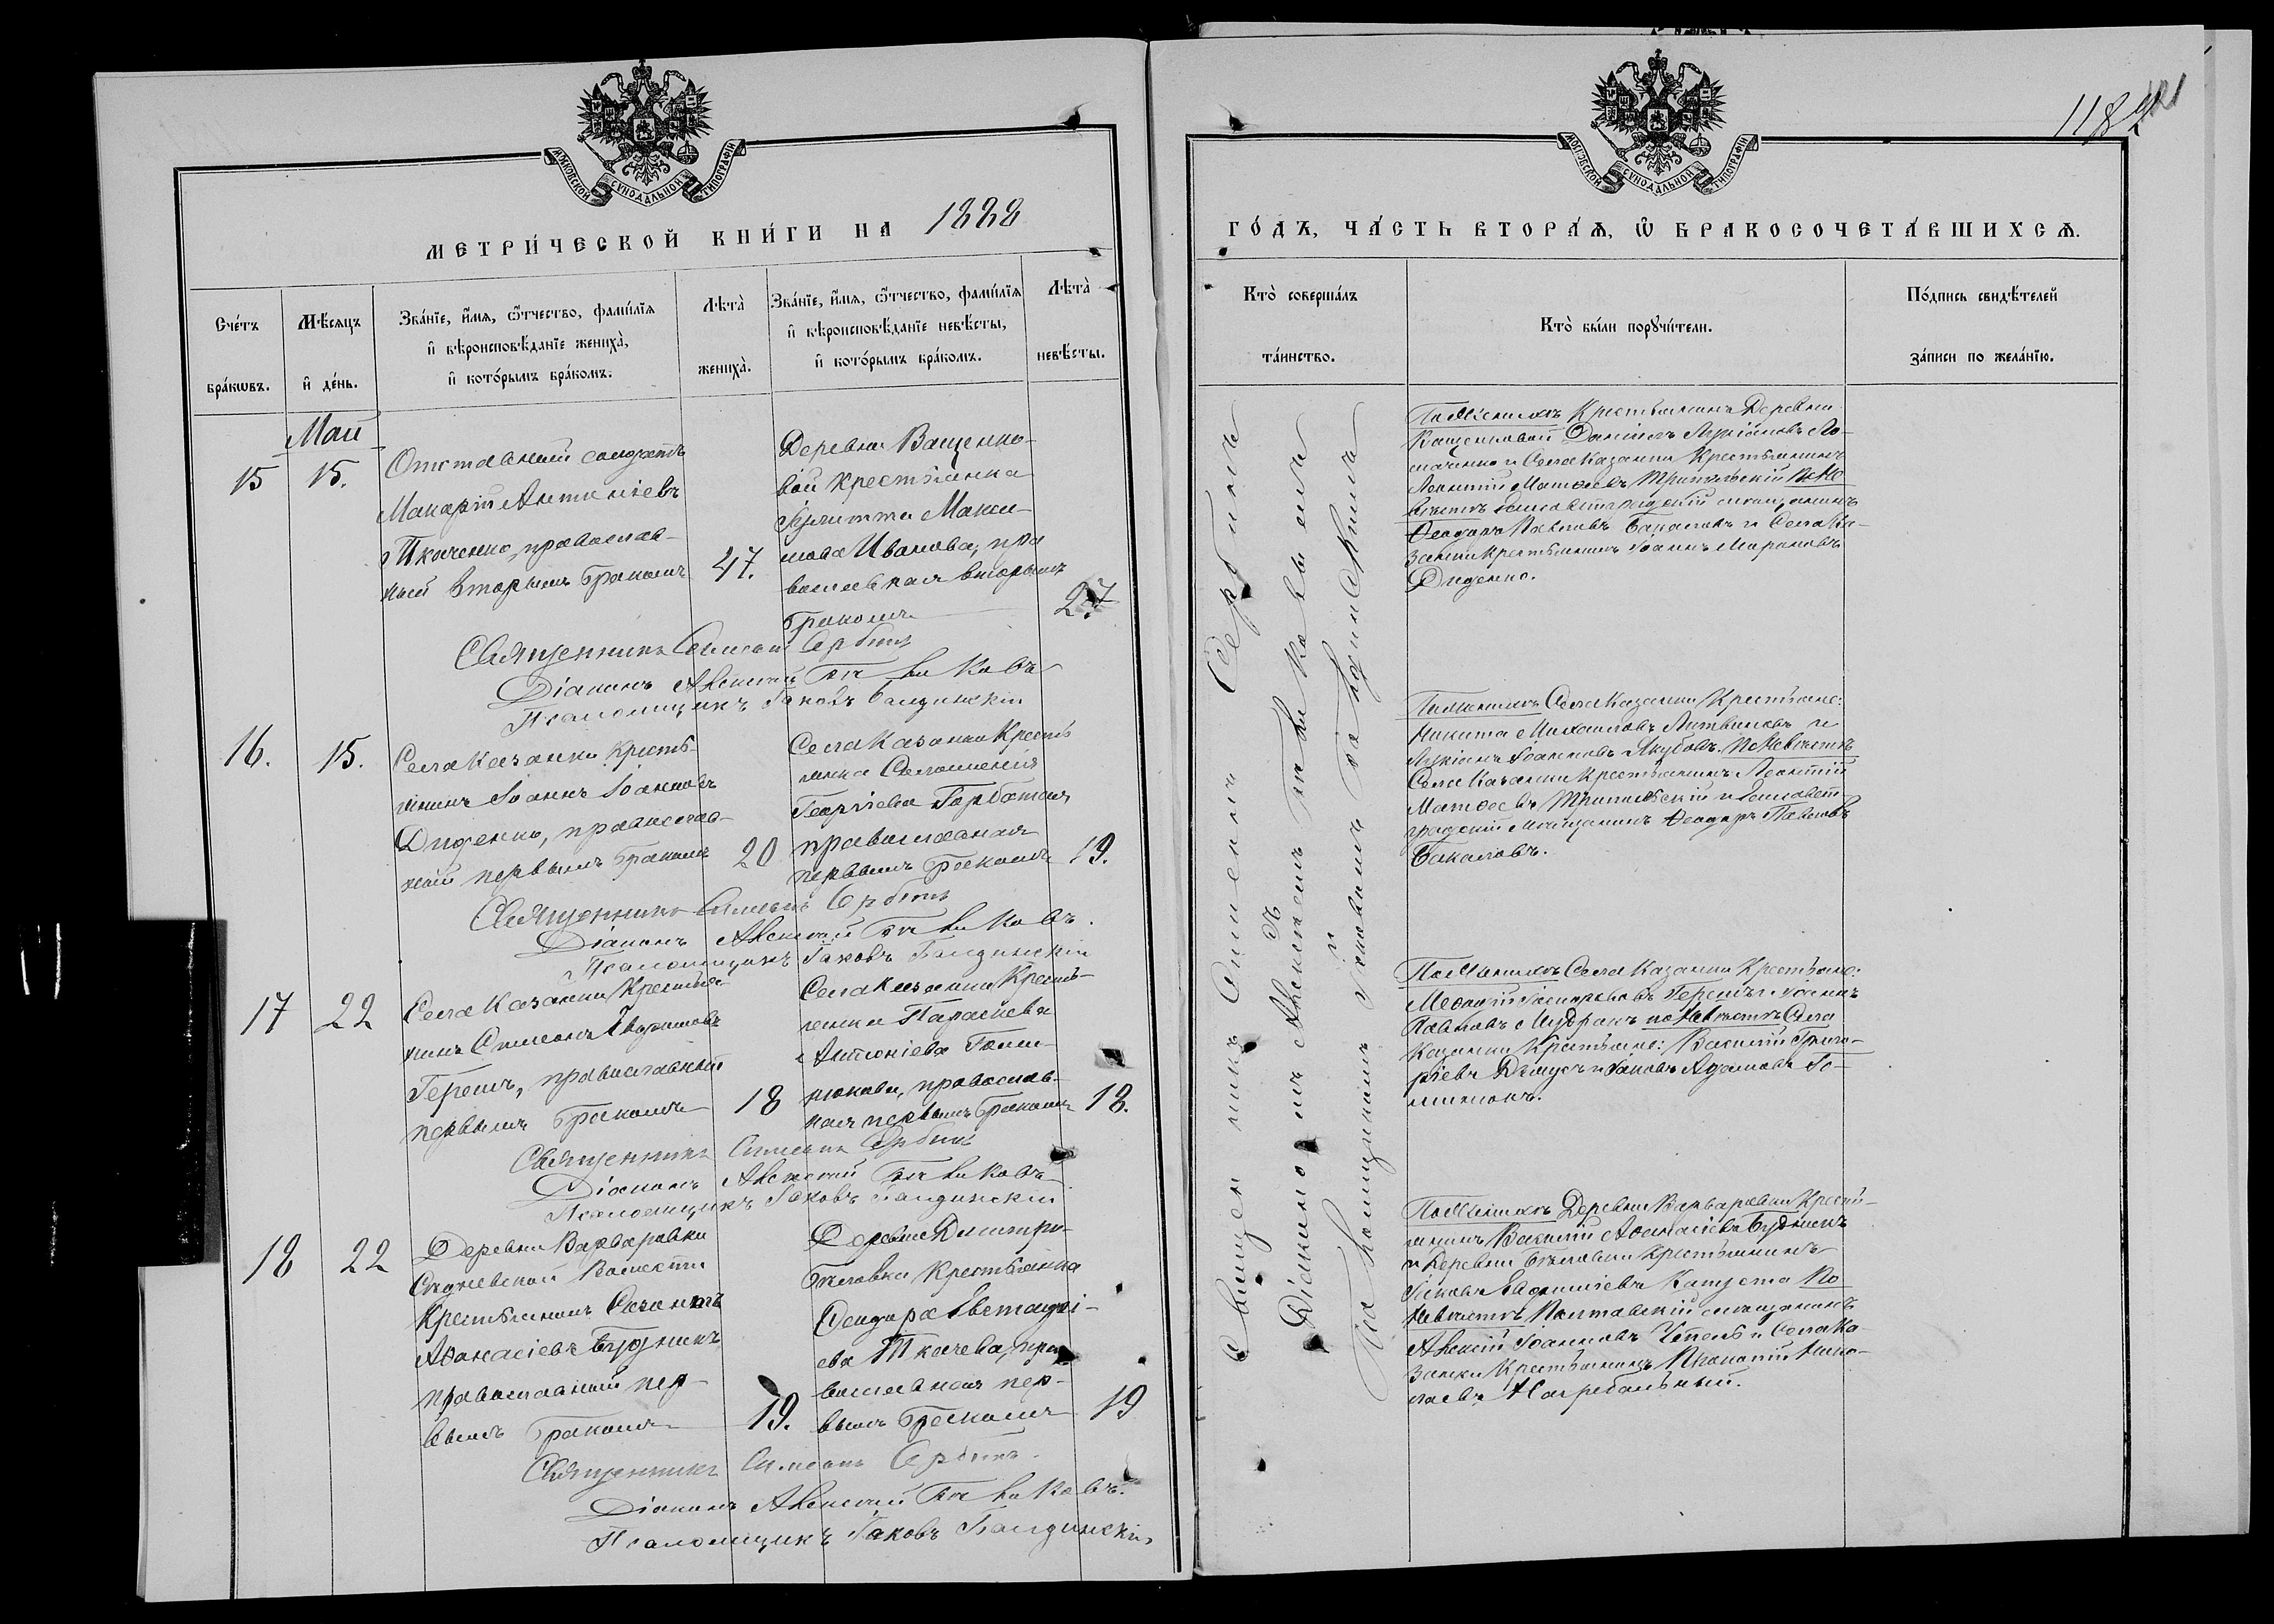 МОСКОВСКОЙ СѴНОДАЛЬНОЙ ТИПОГРАФІИ
МЕТРИ́ЧЕСКОЙ КНИ́ГИ НА 1888
Сче́тъ бра́кѡвъ.
Мѣ́сяцъ и҆ де́нь.
Зва́нїе, и҆́мѧ, ѻ҆́тчество, фами́лїѧ
и҆ вѣроисповѣ́данїе жениха̀,
и҆ кото́рымъ бра́комъ.
Лѣта̀ жениха̀.
Зва́нїе, и҆́мѧ, ѻ҆́тчество, фами́лїѧ
и҆ вѣроисповѣ́данїе невѣ́сты,
и҆ кото́рымъ бра́комъ.
Лѣта̀ невѣ́сты.
Май
15
15.
Отставный солдатъ
Макарій Антоніевъ
Ткаченко, православ-
ный вторымъ бракомъ
47.
Деревни Ващенко-
вой крестьянка
Максі-
мова Иванова, пра
вославная вторымъ
бракомъ
27
Священникъ Симеонъ Сербинъ
Діаконъ Алексій
Псаломщикъ Іаковъ Балдинскій
16.
15.
Села Казанки кресть-
янинъ Іоаннъ Іоанновъ
Диденко, православ-
ный первымъ бракомъ
20
Села Казанки Кресть
янка Соломонія
Георгіева Горбатая
православная
первымъ бракомъ
19.
Священникъ Симеонъ Сербинъ
Діаконъ Алексій
Псаломщикъ Іаковъ Балдинскій
17
22
Села Казанки Крестья
нинъ Симеонъ
православный
первымъ бракомъ
18
Села Казанки Кресть-
янка Параскева
Антоніева Голи-
нюкова, православ-
ная первымъ бракомъ
18.
Священникъ Симеонъ Сербинъ
Діаконъ Алексій
Псаломщикъ Іаковъ Балдинскій
18
22
Деревни Варваровки
Волости
Крестьянинъ
Аѳанасіевъ Будникъ
православный пер-
вымъ бракомъ
19.
Деревни Дмитро-
бѣловки Крестьянка
Ѳеодора Евстафі-
ева Ткачева, пра
вославная пер-
вымъ бракомъ
19
Священникъ Симеонъ Сербинъ.
Діаконъ Алексій
Псаломщикъ Іаковъ Балдинскій
МОСКОВСКОЙ СѴНОДАЛЬНОЙ ТИПОГРАФІИ
ГО́ДЪ, ЧА́СТЬ ВТОРА́Ѧ, Ѡ҆ БРАКОСОЧЕТА́ВШИХСѦ.
Кто̀ соверша́лъ
та́инство.
Кто̀ бы́ли порꙋчи́тели.
По́дпись свидѣ́телей
за́писи по жела́нїю.
Священникъ Симеонъ Сербинъ
съ
Діакономъ Алексіемъ
и
Псаломщикомъ Іаковомъ Балдинскимъ
По Женихѣ Крестьянинъ Деревни
Ващенковой Даніилъ Лукіановъ Ло-
маченко и Села Казанки Крестьянинъ
Леонтій Матѳеевъ Трипольскій По Не
вѣстѣ Елисаветградскій мѣщанинъ
Ѳеодоръ Павловъ Бакаловъ и Села Ка-
занки Крестьянинъ Іоаннъ Мироновъ
Диденко.
По Женихѣ Села Казанки Крестьяне:
Никита Михаиловъ Литвиновъ и
Лукіанъ Іоанновъ Якубовъ. По Невѣстѣ
Села Казанки Крестьянинъ Леонтій
Матѳеевъ Трипольскій и Елисавет
градскій Мѣщанинъ Ѳеодоръ Павловъ
Бакаловъ.
По Женихѣ Села Казанки Крестьяне:
Іоаннъ
Павловъ Мудракъ по Невѣстѣ Села
Казанки Крестьяне: Василій Григо-
ріевъ и Іаковъ Адамовъ Го-
линюкъ.
По Женихѣ Деревни Варваровки Крестья-
нинъ Василій Аѳанасіевъ Будникъ
и Деревни Бѣловки Крестьянинъ
Іаковъ Капуста По
Невѣстѣ Полтавскій мѣщанинъ
Алексій Іоанновъ Чепель и Села Ка-
занки Крестьянинъ Прокопій Нико-
лаевъ